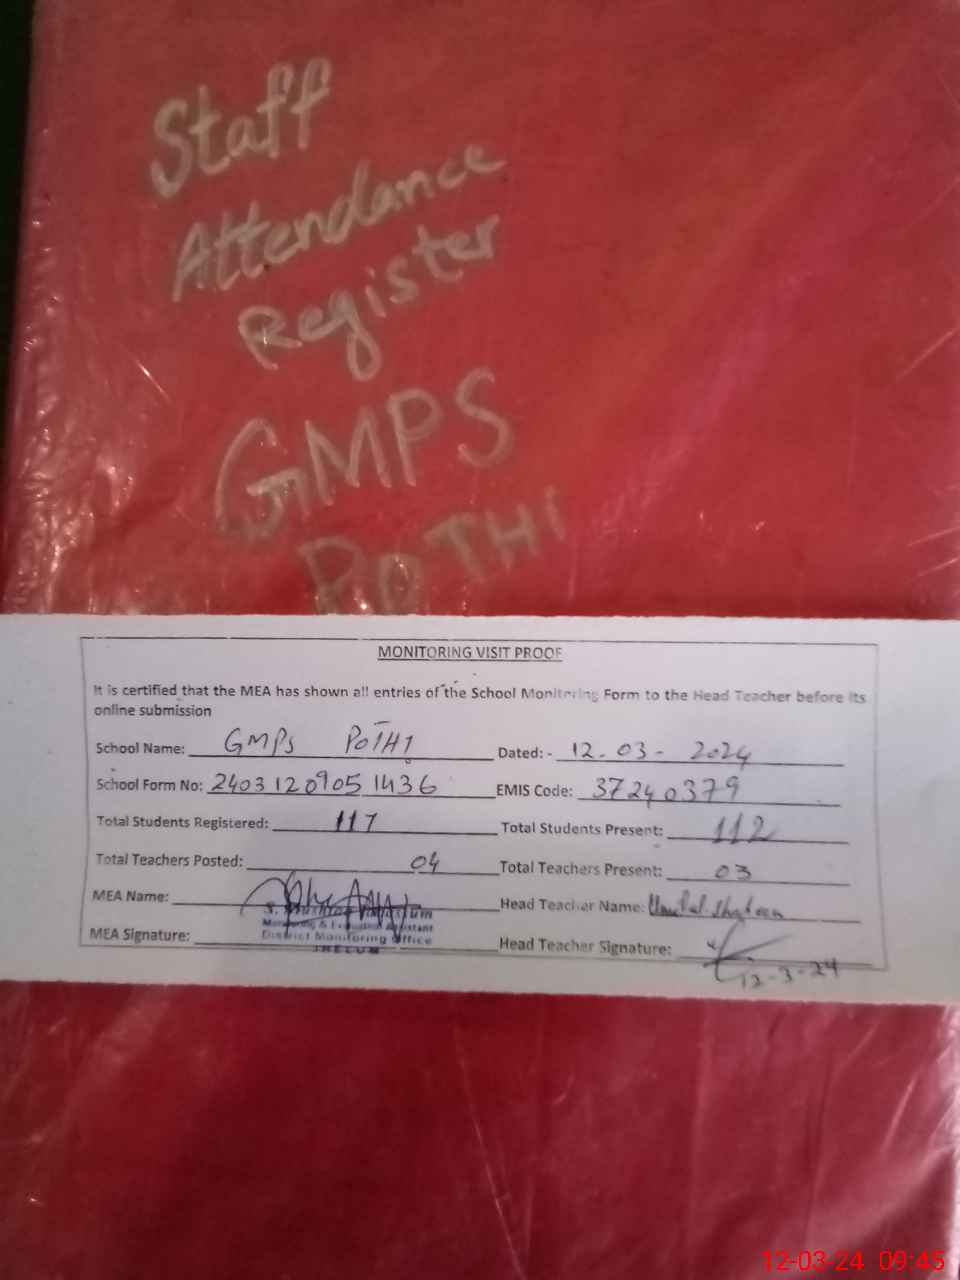 Staff
Attendance
Register
GMPS
POTHI
MONITORING VISIT PROOF
It is certified that the MEA has shown all entries of the School Monitoring Form to the Head Teacher before its
online submission
School Name: GMPS POTHI Dated:- 12.03-2024
School Form No: 2403120905 1436 EMIS Code: 37240379
Total Students Registered: 117 Total Students Present: 112
Total Teachers Posted: 04 Total Teachers Present: 03
MEA Name: Head Teacher Name: Shaheen
Monitoring & Evaluation Assistant
MEA Signature: District Monitoring Office Head Teacher Signature:
JHELUM
12-3-24
12-03-24 09:45